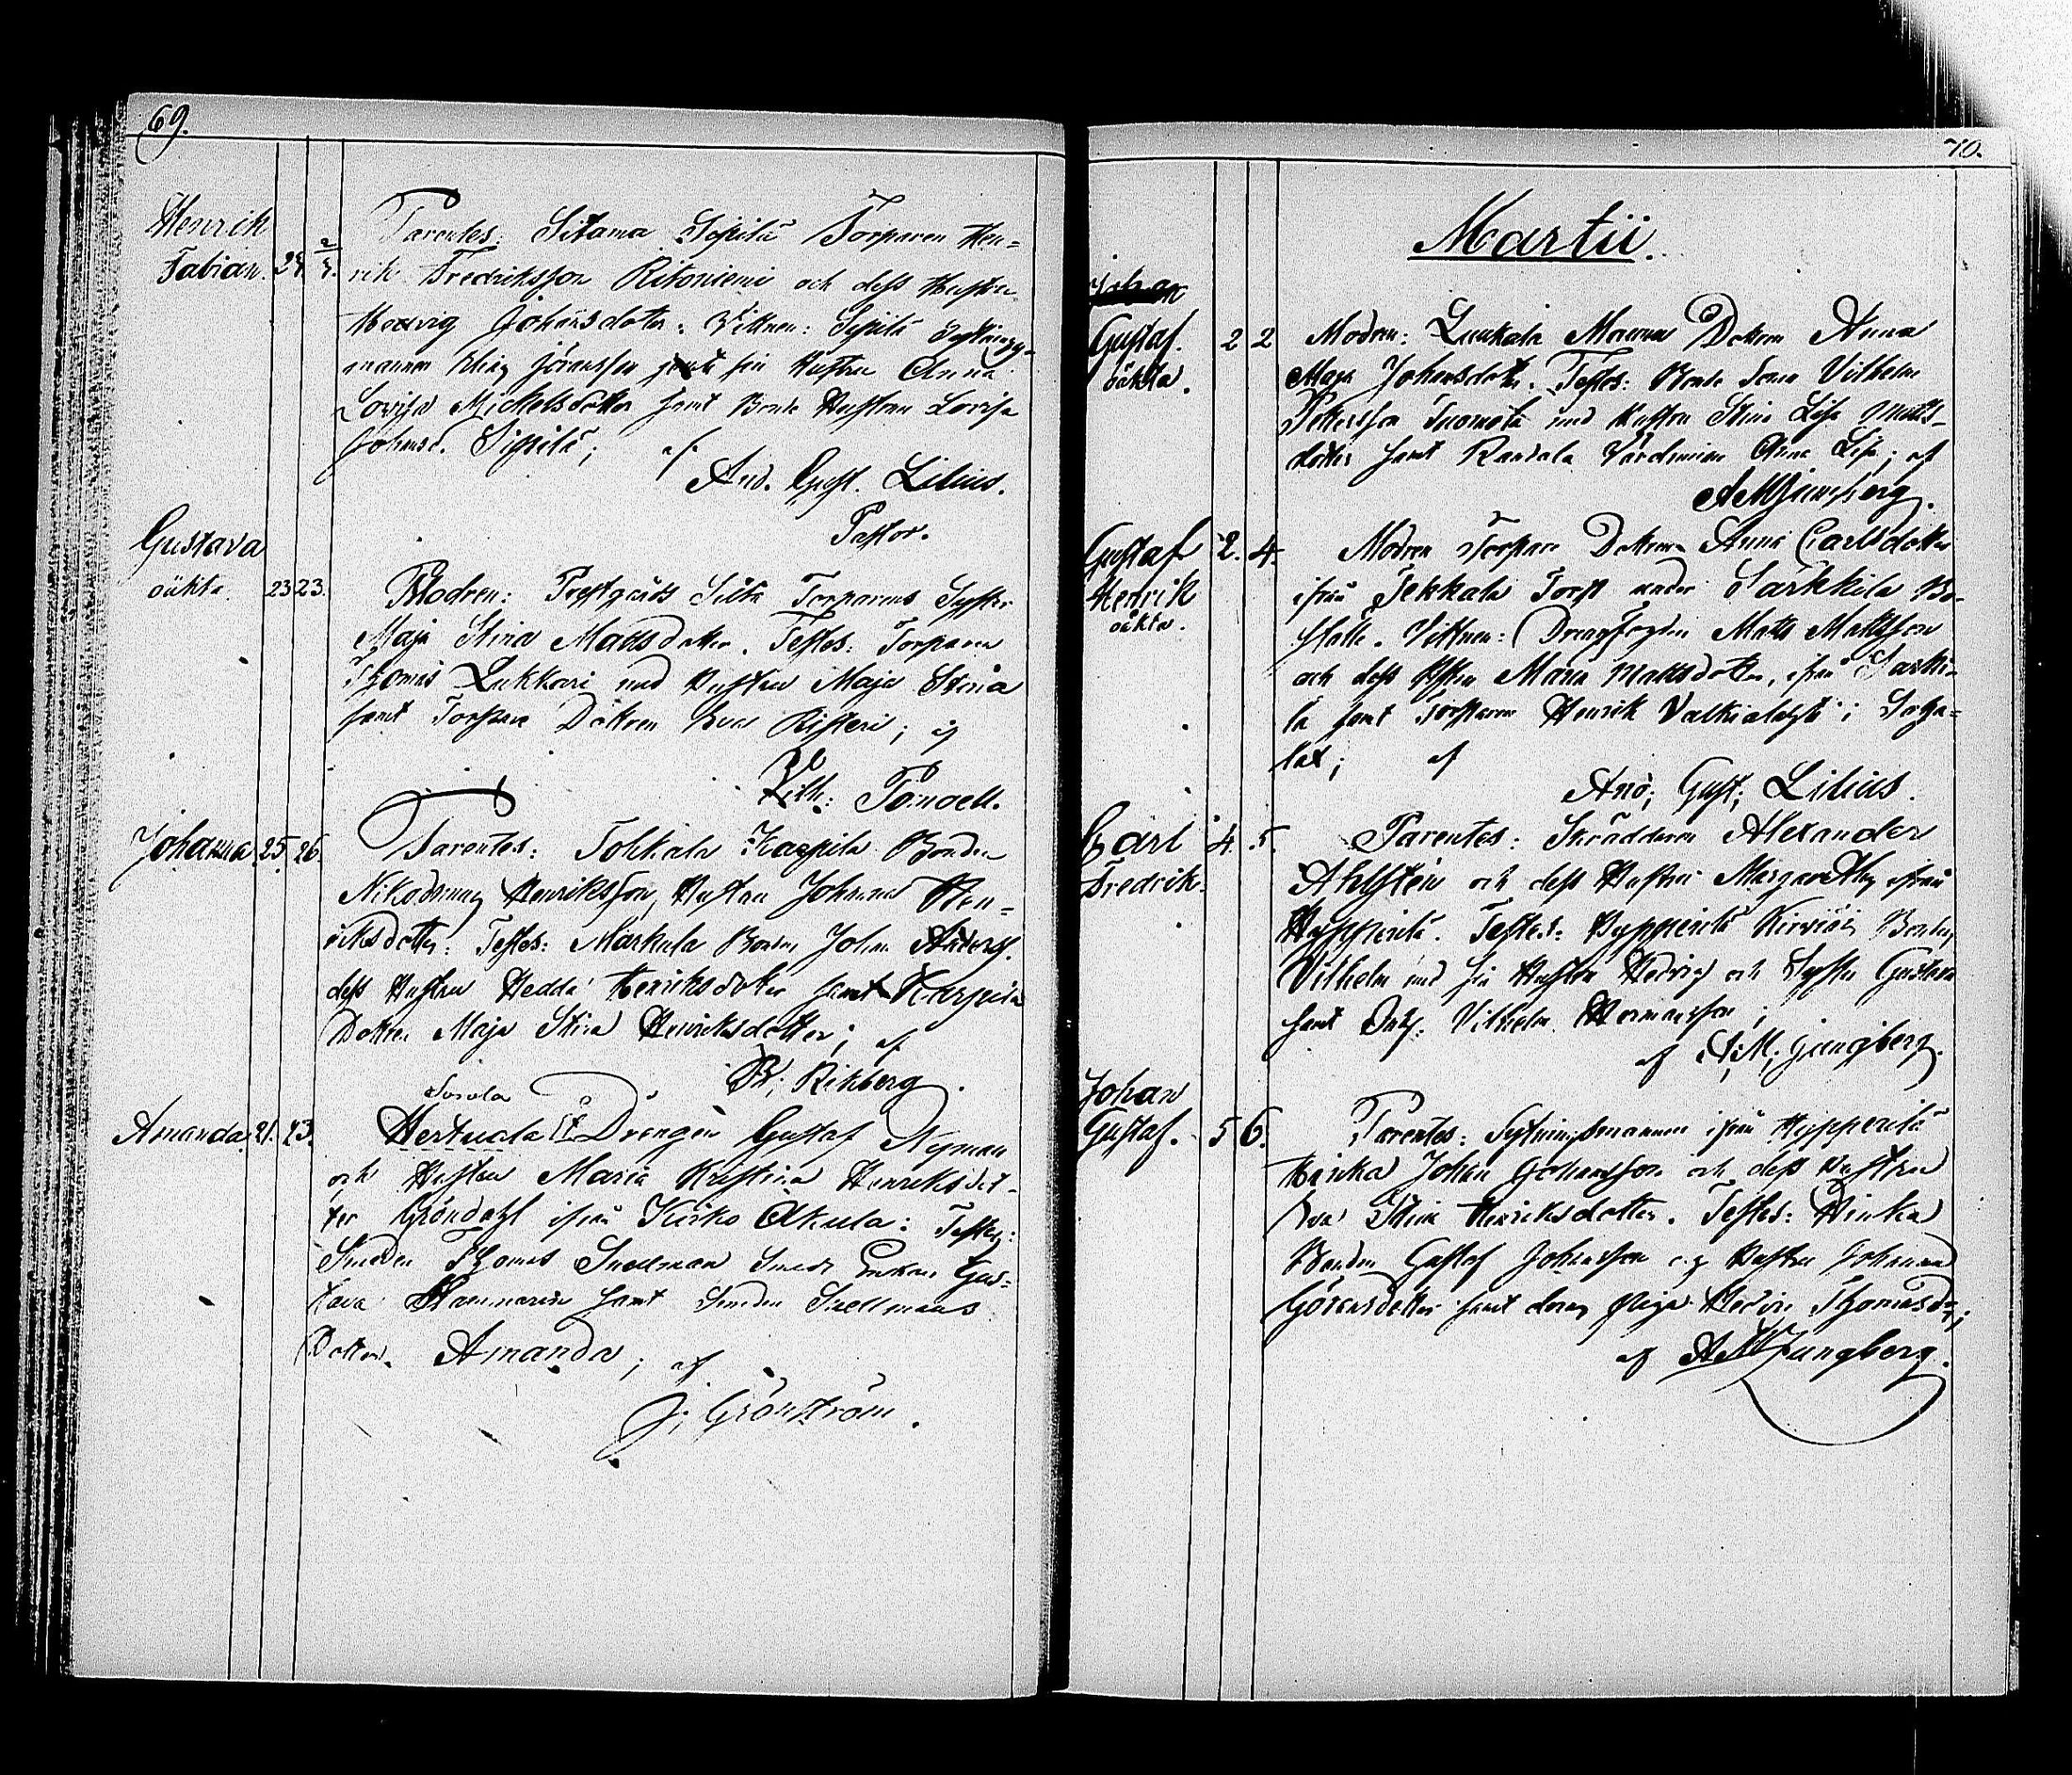 69.
Henrik
Fabian. 24 2/3. Parentes: Sitama Sipilä Torparen Hen=
rik Fredriksson Ritoniemi och dess Hustru
Hedvig Johansdotter. Vittnen: Sipilä Sytnings-
mannen Elias Göransson jemte sin Hustru Anna
Lovisa Mickelsdotter samt Bonde Hustrun Lovisa
Johansd. Sipilä; af
And. Gust. Lilius.
Pastor.
Gustava
oäkta. 23 23. Modren: Prestgårds Silta Torparens Syster
Maja Stina Mattsdotter. Testes: Torparen
Thomas Lukkari med Hustru Maja Stina
samt Torpare Dottren Eva Risteri; af
Vilh: Ponoell.
Johanna 25 26. Parentes: Tokkala Karpila Bonden
Nikodemus Henriksson, Hustrun Johanna Hen=
riksdotter: Testes: Markula Bonden Johan Anders.
dess Hustru Hedda Henriksdotter samt Karpila
Dottren Maja Stina Henriksdotter; af
B; Rikberg.
Sorola
Amanda. 21. 23. Hertuala Drengen Gustaf Nyman
och Hustru Maria Kristina Henriksdot-
ter Gröndahl ifrån Kirko Akula: Testes:
Smeden Thomas Snellman Smeds Enkan Gus=
tava Hammarin samt Smeden Snellmans
Dotter Amanda; af
J; Grönström.
70.
Martii.
Johan
Gustaf. 2 2 Modren: Laukala Dottren Anna
oäkta. Maja Johansdotter. Testes: Bonde Sonen Vilhelm
Pettersson Tuomola med Hustru Stina Lisa Matts-
dotter samt Randala Värdinnan Anna Lisa; af
AMjungberg.
Gustaf 2. 4. Modren Torpare Dottren Anna Carlsdotter
Henrik ifrån Tekkala Torp under Sarkkila Bo-
oäkta. ställe. Vittnen: Drengfogden Matts Mattsson
och dess Hustru Maria Mattsdotter, ifrån Sarki-
la samt Torparen Henrik Valkialahti i Saha-
lax; af
And; Gust; Lilius.
Carl 4. 5. Parentes: Skräddaren Alexander
Fredrik. Ahlstén och dess Hustru Margaretha ifrån
Hyppärilä. Testes: Hyppärilä Bonden
Vilhelm med sin Hustru Hedvig och Syster Gustava
samt Vilhelm Hermansson;
af A;M; jungberg.
Johan
Gustaf. 5 6. Parentes: Sytningsmannen ifrån Hyppärilä
Hinka Johan Johansson och dess Hustru
Eva Stina Henriksdotter. Testes: Hinka
Bonden Gustaf Johansson och Hustru Johanna
Göransdotter samt deras Piga Hedvig Thomasdr;
af AMjungberg.